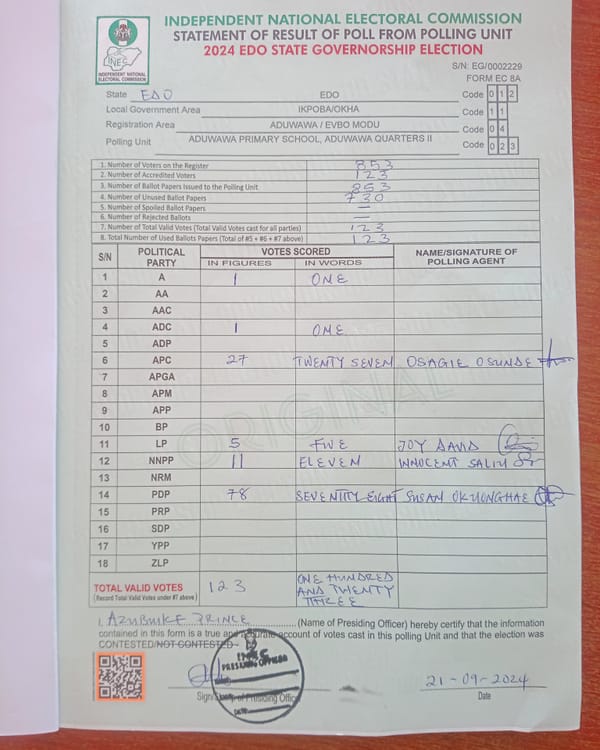 INDEPENDENT NATIONAL ELECTORAL COMMISSION
STATEMENT OF RESULT OF POLL FROM POLLING UNIT
2024 EDO STATE GOVERNORSHIP ELECTION
INEC
INDEPENDENT NATIONAL
ELECTORAL COMMISSION
S/N: EG/0002229
FORM EC 8A
State EDO EDO Code 0 1 2
Local Government Area IKPOBA/OKHA Code 1 1
Registration Area ADUWAWA / EVBO MODU Code 0 4
Polling Unit ADUWAWA PRIMARY SCHOOL, ADUWAWA QUARTERS II Code 0 2 3
1. Number of Voters on the Register 853
2. Number of Accredited Voters 123
3. Number of Ballot Papers Issued to the Polling Unit 853
4. Number of Unused Ballot Papers 730
5. Number of Spoiled Ballot Papers —
6. Number of Rejected Ballots —
7. Number of Total Valid Votes (Total Valid Votes cast for all parties) 123
8. Total Number of Used Ballots Papers (Total of #5 + #6 + #7 above) 123
S/N POLITICAL PARTY VOTES SCORED NAME/SIGNATURE OF POLLING AGENT
IN FIGURES IN WORDS
1 A 1 ONE
2 AA
3 AAC
4 ADC 1 ONE
5 ADP
6 APC 27 TWENTY SEVEN OSAGIE OSUNDE
7 APGA
8 APM
9 APP
10 BP
11 LP 5 FIVE JOY DAVID
12 NNPP 11 ELEVEN INNOCENT SALIU
13 NRM
14 PDP 78 SEVENTITY EIGHT SUSAN OKUONGHAE
15 PRP
16 SDP
17 YPP
18 ZLP
ORIGINAL
TOTAL VALID VOTES 123 ONE HUNDRED
(Record Total Valid Votes under #7 above) AND TWENTY
THREE
I, AZUBUIKE PRINCE (Name of Presiding Officer) hereby certify that the information
contained in this form is a true and accurate account of votes cast in this polling unit and that the election was
CONTESTED/NOT CONTESTED
INEC
PRESIDING OFFICER
DATE
21-09-2024
Sign/Stamp of Presiding Officer Date